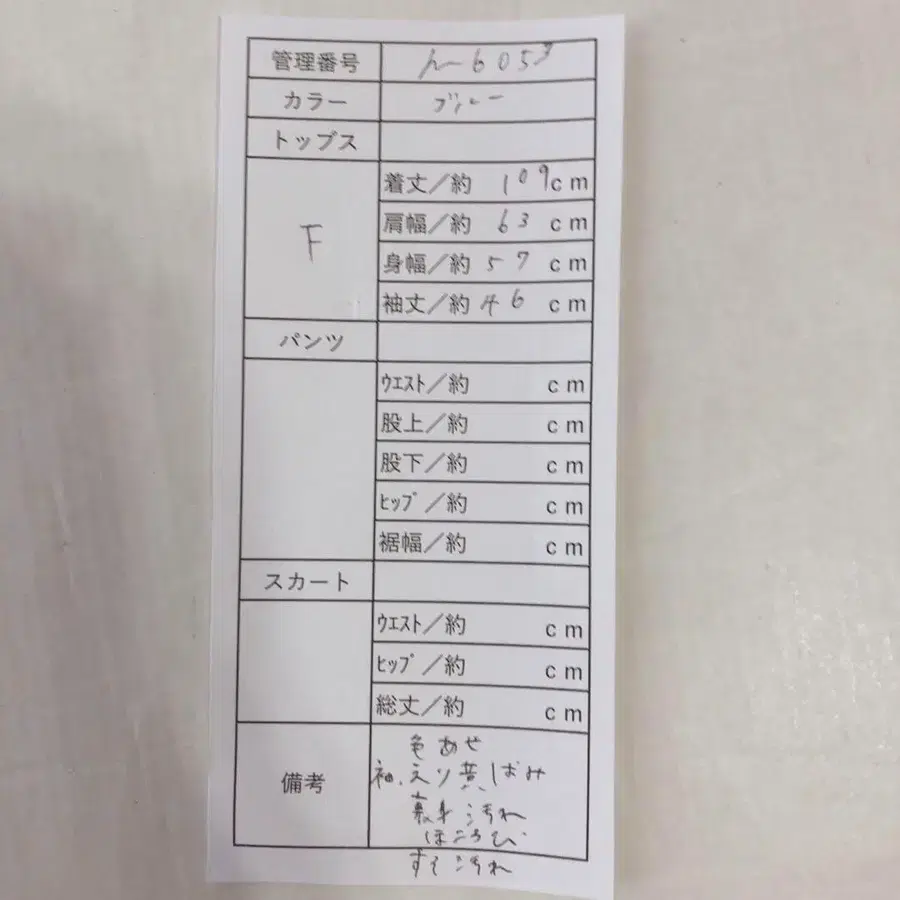 管理番号 h-6059
カラー ブルー
トップス
F
着丈／約 109cm
肩幅／約 63 cm
身幅／約 57 cm
袖丈／約 46 cm
パンツ
ｳｴｽﾄ／約 cm
股上／約 cm
股下／約 cm
ﾋｯﾌﾟ／約 cm
裾幅／約 cm
スカート
ｳｴｽﾄ／約 cm
ﾋｯﾌﾟ／約 cm
総丈／約 cm
備考
色あせ
袖、えり黄ばみ
汚れ
ほころび
すそ汚れ